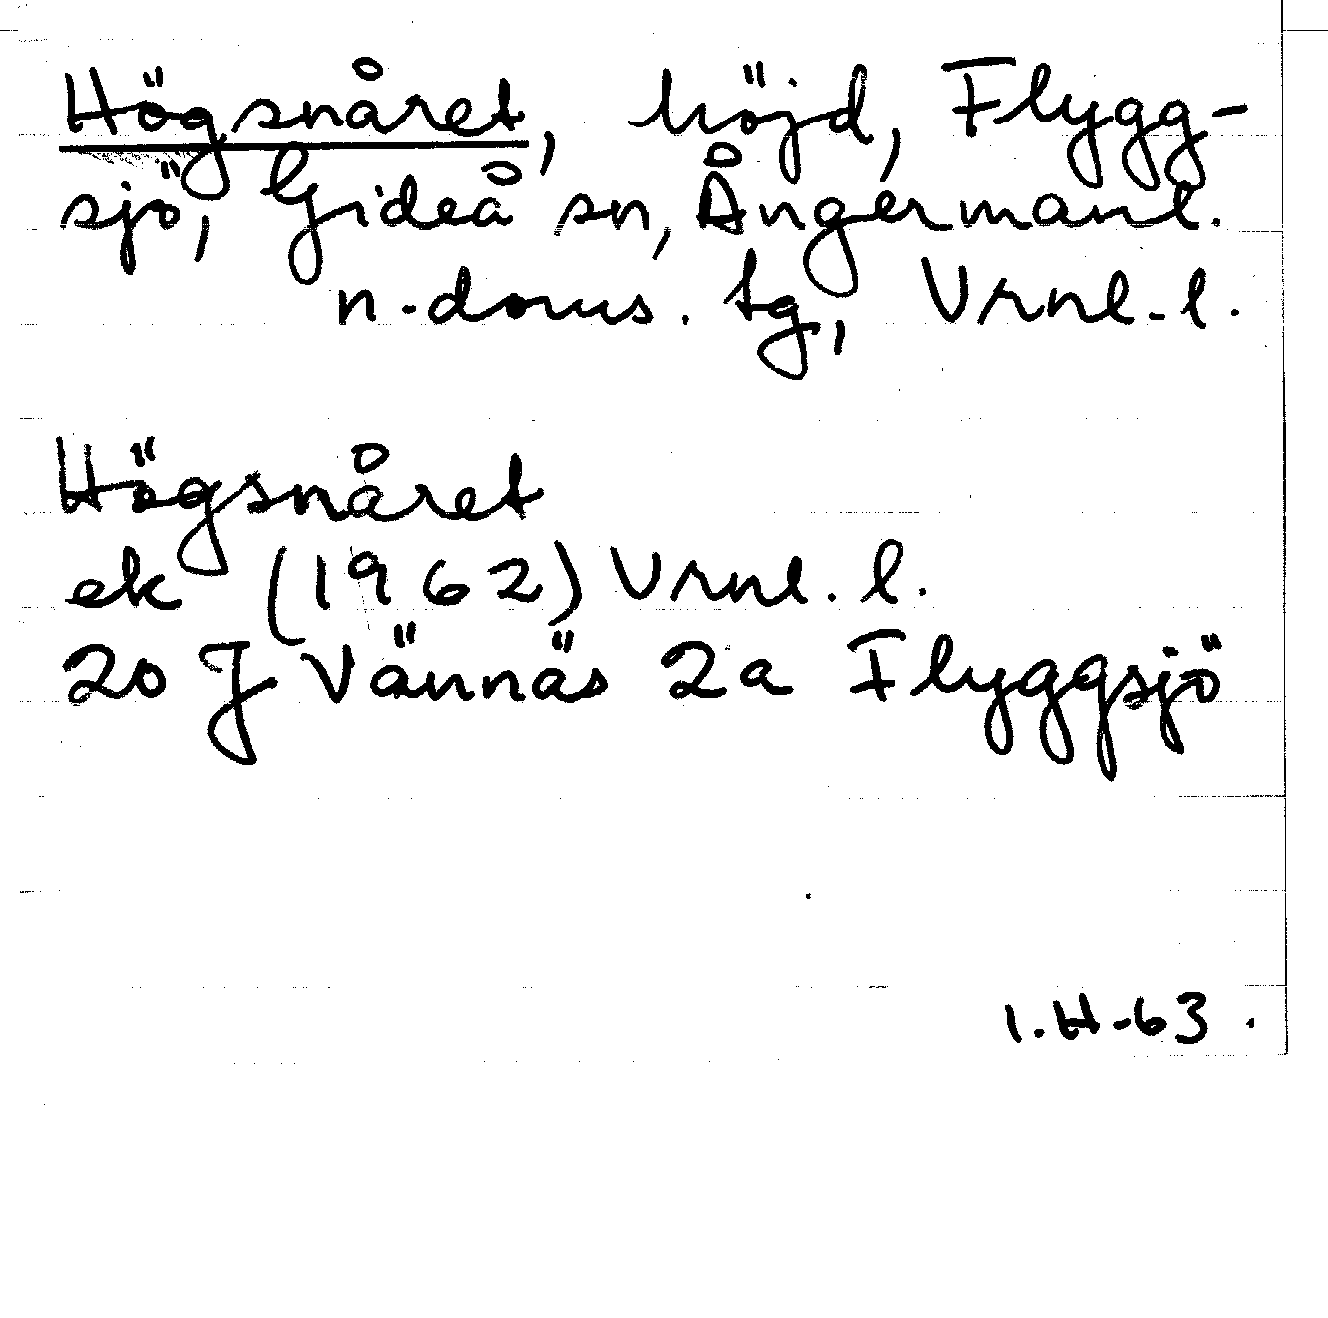 Högsnåret, höjd, Flygg-
sjö, Gideå sn, Ångermanl.
n. doms. tg, Vrnl. l.
Högsnåret
ek (1962) Vrnl. l.
20 J Vännäs 2a Flyggsjö
I.H-63.